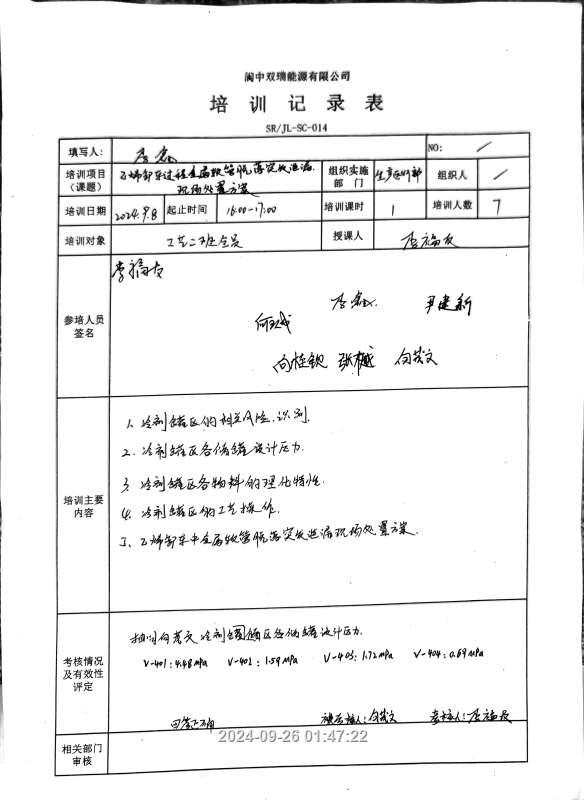 阆中双瑞能源有限公司
培训记录表
SR/JL-SC-014
填写人： 李磊 NO： /
培训项目（课题） 乙烯卸车过程金属软管脱落突发泄漏现场处置方案 组织实施部门 生产运行部 组织人 /
培训日期 2024.9.8 起止时间 16:00-17:00 培训课时 1 培训人数 7
培训对象 工艺二班全员 授课人 李福友
参培人员签名
李福友
李磊 尹建新
向桂钦 张樾 向茂文
培训主要内容
1、冷剂罐区的相关风险识别.
2、冷剂罐区各储罐设计压力.
3、冷剂罐区各物料的理化特性.
4、冷剂罐区的工艺操作.
5、乙烯卸车中金属软管脱落突发泄漏现场处置方案.
考核情况及有效性评定
抽问向茂文冷剂罐区各储罐设计压力.
V-401：4.48mPa V-402：1.59mPa V-403：1.72mPa V-404：0.69mPa
回答正确 被考核人：向茂文 考核人：李福友
2024-09-26 01:47:22
相关部门审核